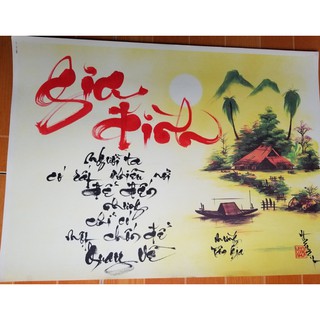 Gia
đình
Người ta
có rất nhiều nơi
để đến
nhưng
chỉ có
một chốn để
quay về